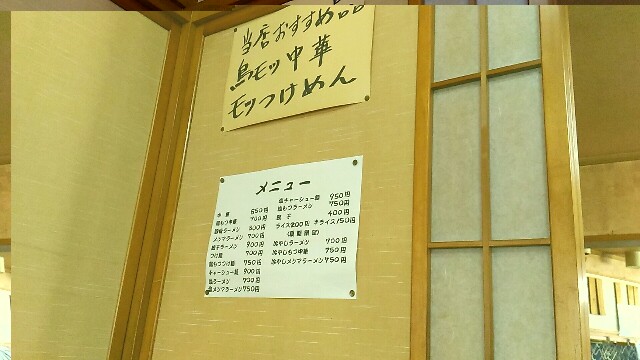 当店おすすめ品
鳥モツ中華
モツつけめん
メニュー
中華 550円
鳥もつ中華 700円
味噌ラーメン 800円
メンマラーメン 700円
餃子ラーメン 900円
つけ麺 700円
鳥もつつけ麺 750円
チャーシュー麺 900円
塩ラーメン 700円
塩メンマラーメン 750円
塩チャーシュー麺 950円
塩もつラーメン 750円
餃子 400円
ライス200円 半ライス150円
(夏期限定)
冷やしラーメン 700円
冷やしもつ中華 750円
冷やしメンマラーメン 750円